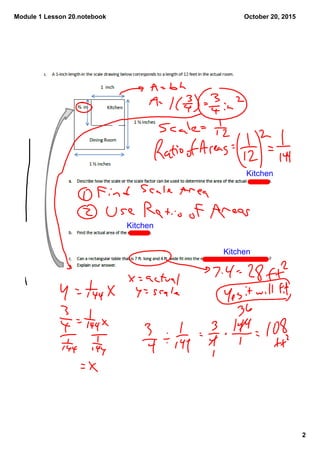 Module 1 Lesson 20.notebook
October 20, 2015
1. A 1-inch length in the scale drawing below corresponds to a length of 12 feet in the actual room.
1 inch
¾ in
Kitchen
1 ½ inches
Dining Room
1 ½ inches
A = bh
A = 1(3/4) = 3/4 in²
Scale = 1/12
Ratio of Areas = (1/12)² = 1/144
Kitchen
a. Describe how the scale or the scale factor can be used to determine the area of the actual
① Find Scale Area
② Use Ratio of Areas
Kitchen
b. Find the actual area of the
Kitchen
c. Can a rectangular table that is 7 ft. long and 4 ft. wide fit into the
?
Explain your answer.
x = actual
y = scale
7·4 = 28 ft²
Yes it will fit
y = 1/144 x
3/4 = 1/144 x
1/144 1/144
= x
3/4 ÷ 1/144 = 3/4 · 144/1 = 108 ft²
36
1
2